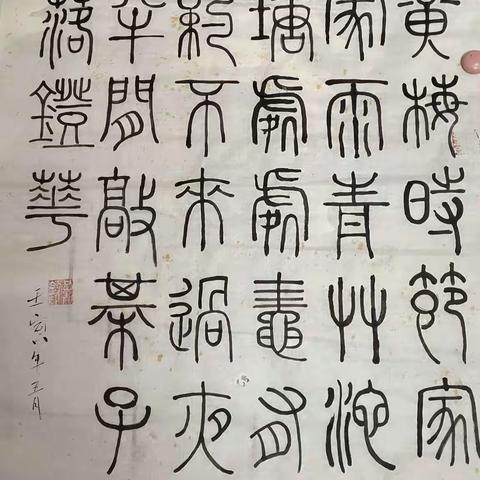 黃梅時節家
家雨青艸池
塘處處鼃有
約不來過夜
半閒敲棊子
落鐙華
壬寅年五月